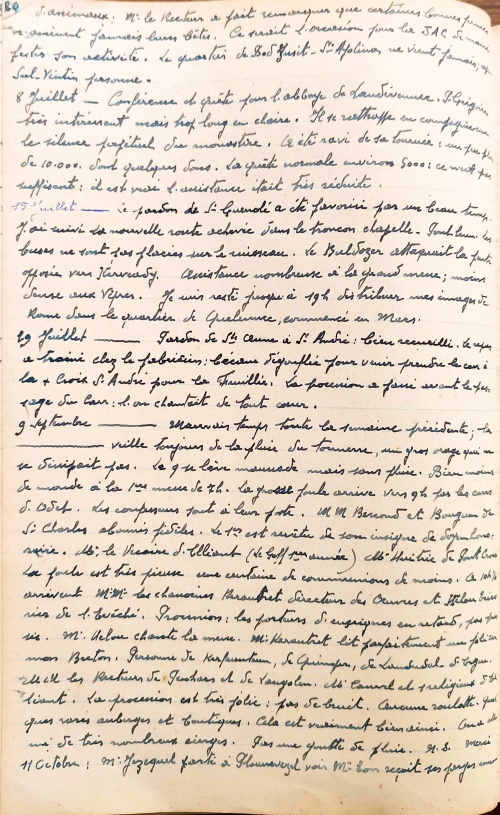 d'animaux: Mr le Recteur a fait remarquer que certaines bonnes gens
n'animent jamais leurs bêtes. Ce serait l'occasion pour la JAC de mani
fester son activité. Le quartier de St Apolinaire ne vient jamais;
Sul Ventus personne.
8 Juillet — Conférence et quête pour l'abbaye de Landévennec. P. Grégoire
très intéressant mais trop long en chaire. Il se rattrappe en compagnie
le silence perpétuel du monastère. Il a été ravi de sa tournée: un peu plus
de 10.000. dont quelques dons. La quête normale environ 5000: ce n'est pas
suffisant: il est vrai l'assistance était très réduite.
15 Juillet — Le pardon de St Guénolé a été favorisé par un beau temps.
J'ai suivi la nouvelle route achevée dans le tronçon chapelle - Pont. Les
buses ne sont pas placées sur le ruisseau. Le Buldozer attaquait la pente
opposée vers Kervendy. Assistance nombreuse à la grand messe; moins
dense aux Vêpres. Je suis resté jusque à 19h distribuer mes images de
Rome dans le quartier de Quelennec, commencé en Mars.
29 Juillet — Pardon de Ste Anne à St André: bien recueilli. Le repas
a trainé chez le fabricien: bécane dégonflée pour venir prendre le car à
la + Croix St André pour la Feuillée. La procession a passé avant le pas
sage du car: l'on chantait de tout cœur.
9 Septembre — Mauvais temps toute la semaine précédente; la
— veille toujours de la pluie du tonnerre, un gros orage qui ne
se dissipait pas. Le 9 se lève maussade mais sans pluie. Bien moins
de monde à la 1ère messe de 7h. La grosse foule arrive vers 9h par les cars
d'Odet. Les confesseurs sont à leur poste. M M Berrond et Bougaran de
St Charles abonnés fidèles. Le 1er est revêtu de son insigne de doyen hono-
raire. Mr le Vicaire d'Elliant (Le Goff 1ère année) Mr Héritié de Pont Croix
La foule est très pieuse une centaine de communions de moins. A 10h½
arrivent M.M. les chanoines Kerautret directeur des Œuvres et Hélou
rier de l'Evêché. Procession: les porteurs d'enseignes en retard, pas
sis. Mr Hélou chante la messe. Mr Kerautret lit parfaitement un
mon Breton. Personne de Kerfeunteun, de Quimper, de Landudal
M M les Recteurs de Penhars et de Langolen. Mr Canvel et 1 religieux d'El
liant. La procession est très jolie: pas de bruit. Aucune roulotte. Quel
ques rares auberges et boutiques. Cela est vraiment bien ainsi. On a allu
mé de très nombreux cierges. Pas une goutte de pluie. N.D. Merci
11 Octobre: Mr Jézéquel parti à Plounévezel voir Mr Bon reçoit ses